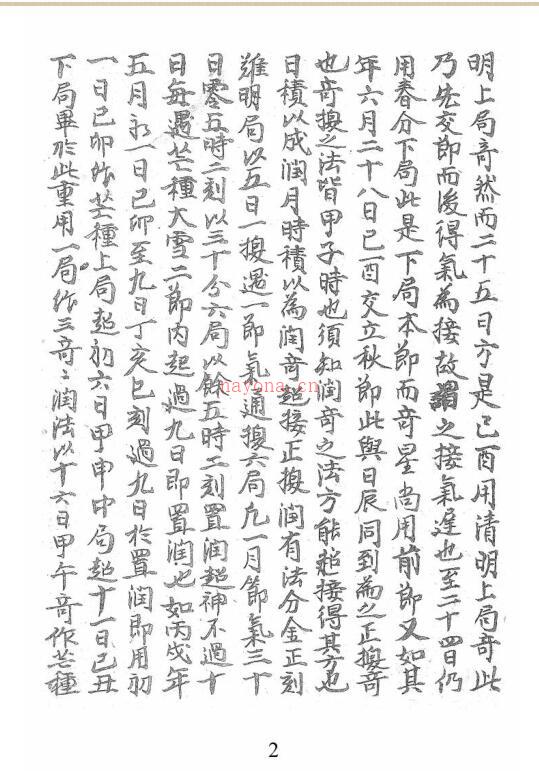 明上局奇然而二十五日方是己酉用清明上局奇此
乃先交節而後得氣為接故謂之接氣遲也至二十四日仍
用春分下局此是下局本節而奇星尚用前節又如其
年六月二十八日己酉交立秋節此與日辰同到為之正換奇
也奇換之法皆甲子時也須知闰奇之法方能超接得其方也
日積以成润月時積以為润奇超接正換润有法分金正刻
雖明局以五日一換遇一節氣通換六局凢一月節氣三十
日零五時二刻以三十分六局以餘五時二刻置润超神不過十
日每遇芒種大雪二節内起過九日即置润也如丙戍年
五月初一日己卯至九日丁亥巳刻過九日於置润即用初
一日己卯作芒種上局超初六日甲申中局超十一日己丑
下局畢於此重用一局作三奇之润法以十六日甲午奇作芒種
nayona.cn
2